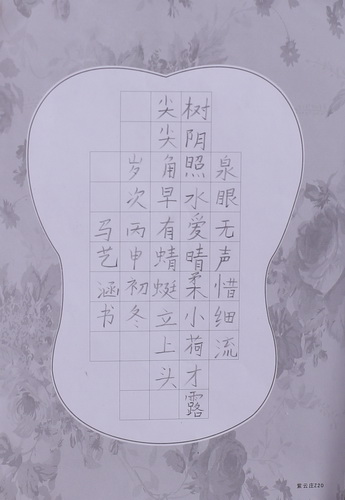 泉眼无声惜细流
树阴照水爱晴柔小荷才露
尖尖角早有蜻蜓立上头
岁次丙申初冬
马艺涵书